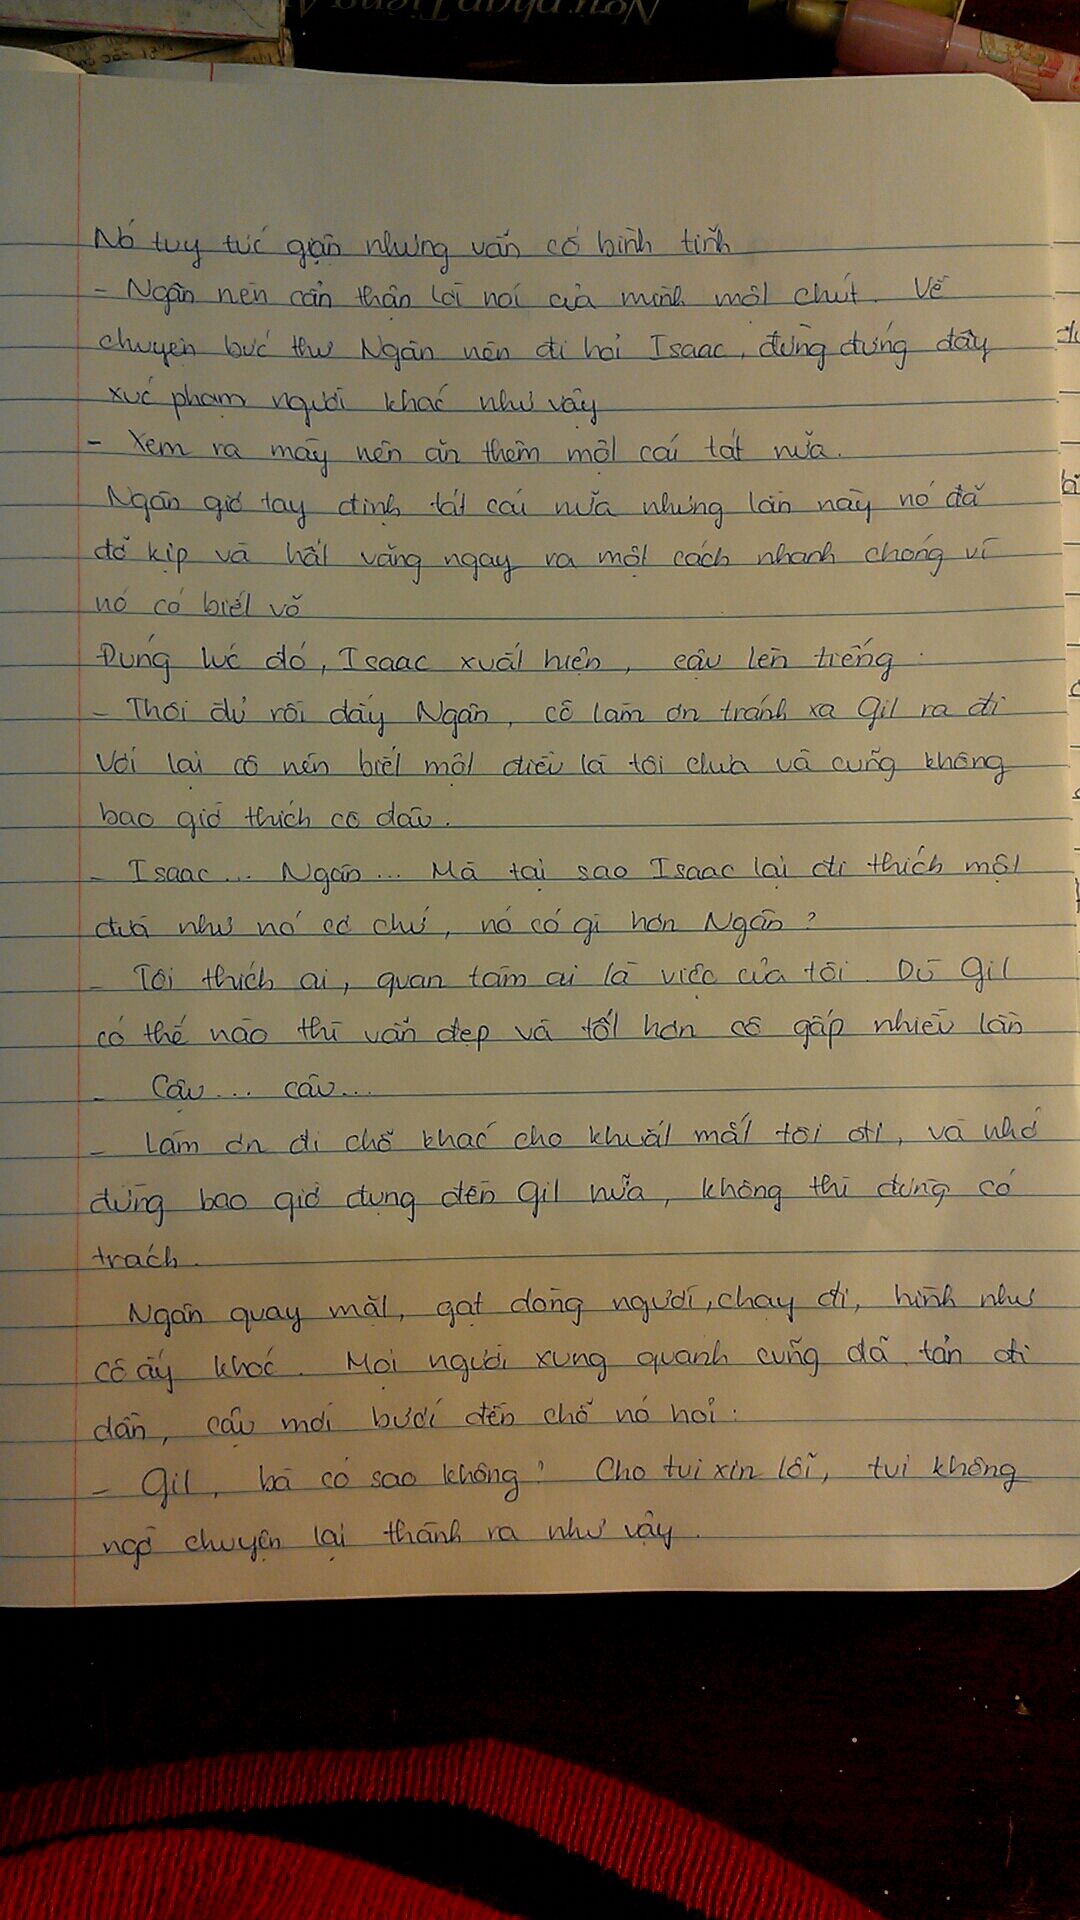 Ngữ pháp Tiếng A
Nó tuy tức giận nhưng vẫn cố bình tĩnh
- Ngân nên cẩn thận lời nói của mình một chút. Về
chuyện bức thư Ngân nên đi hỏi Isaac, đừng đứng đây
xúc phạm người khác như vậy
- Xem ra mày nên ăn thêm một cái tát nữa.
Ngân giơ tay định tát cái nữa nhưng lần này nó đã
đỡ kịp và hất văng ngay ra một cách nhanh chóng vì
nó có biết võ
Đúng lúc đó, Isaac xuất hiện, cậu lên tiếng:
- Thôi đủ rồi đấy Ngân, cô làm ơn tránh xa Gil ra đi
Với lại cô nên biết một điều là tôi chưa và cũng không
bao giờ thích cô đâu.
- Isaac... Ngân... Mà tại sao Isaac lại đi thích một
đứa như nó cơ chứ, nó có gì hơn Ngân?
- Tôi thích ai, quan tâm ai là việc của tôi. Dù Gil
có thế nào thì vẫn đẹp và tốt hơn cô gấp nhiều lần
- Cậu... cậu...
- Làm ơn đi chỗ khác cho khuất mắt tôi đi, và nhớ
đừng bao giờ đụng đến Gil nữa, không thì đừng có
trách.
Ngân quay mặt, gạt dòng người, chạy đi, hình như
cô ấy khóc. Mọi người xung quanh cũng đã tản đi
dần, cậu mới bước đến chỗ nó hỏi:
- Gil, bà có sao không? Cho tui xin lỗi, tui không
ngờ chuyện lại thành ra như vậy.